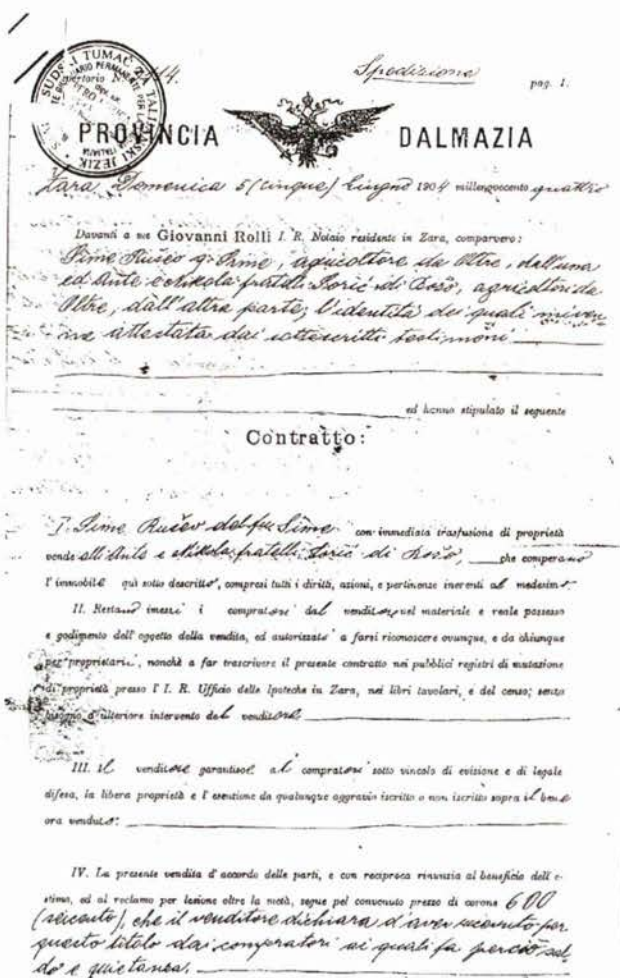 SUDSKI TUMAČ ZA TALIJANSKI JEZIK
Spedizione
pag. 1.
PROVINCIA DALMAZIA
Zara, Domenica 5 (cinque) Giugno 1904 millenovecento quattro
Davanti a me Giovanni Rolli I. R. Notaio residente in Zara, comparvero:
Sime Rušev q. Sime, agricoltore da Oltre, dall'una
ed Ante e Nikola fratelli Sorić di Božo, agricoltori da
Oltre, dall'altra parte; l'identità dei quali mi ven
ne attestata dai sottoscritti testimoni
ed hanno stipulato il seguente
Contratto:
I. Sime Rušev del fu Sime con immediata trasfusione di proprietà
vende all'Ante e Nikola fratelli Sorić di Božo, che comperano
l'immobile quì sotto descritto, compresi tutti i diritti, azioni, e pertinenze inerenti al medesimo.
II. Restano messi i compratori dal venditore nel materiale e reale possesso
e godimento dell'oggetto della vendita, ed autorizzati a farsi riconoscere ovunque, e da chiunque
per proprietari, nonchè a far trascrivere il presente contratto nei pubblici registri di mutazione
di proprietà presso l'I. R. Ufficio delle Ipoteche in Zara, nei libri tavolari, e del censo; senza
bisogno d'ulteriore intervento del venditore
III. Il venditore garantisce ai compratori sotto vincolo di evizione e di legale
difesa, la libera proprietà e l'esenzione da qualunque aggravio iscritto o non iscritto sopra il bene
ora venduto.
IV. La presente vendita d'accordo delle parti, e con reciproca rinunzia al beneficio dell'e-
stimo, ed al reclamo per lesione oltre la metà, segue pel convenuto prezzo di corone 600
(seicento), che il venditore dichiara d'aver ricevuto per
questo titolo dai compratori ai quali fa perciò sal
do e quietanza.